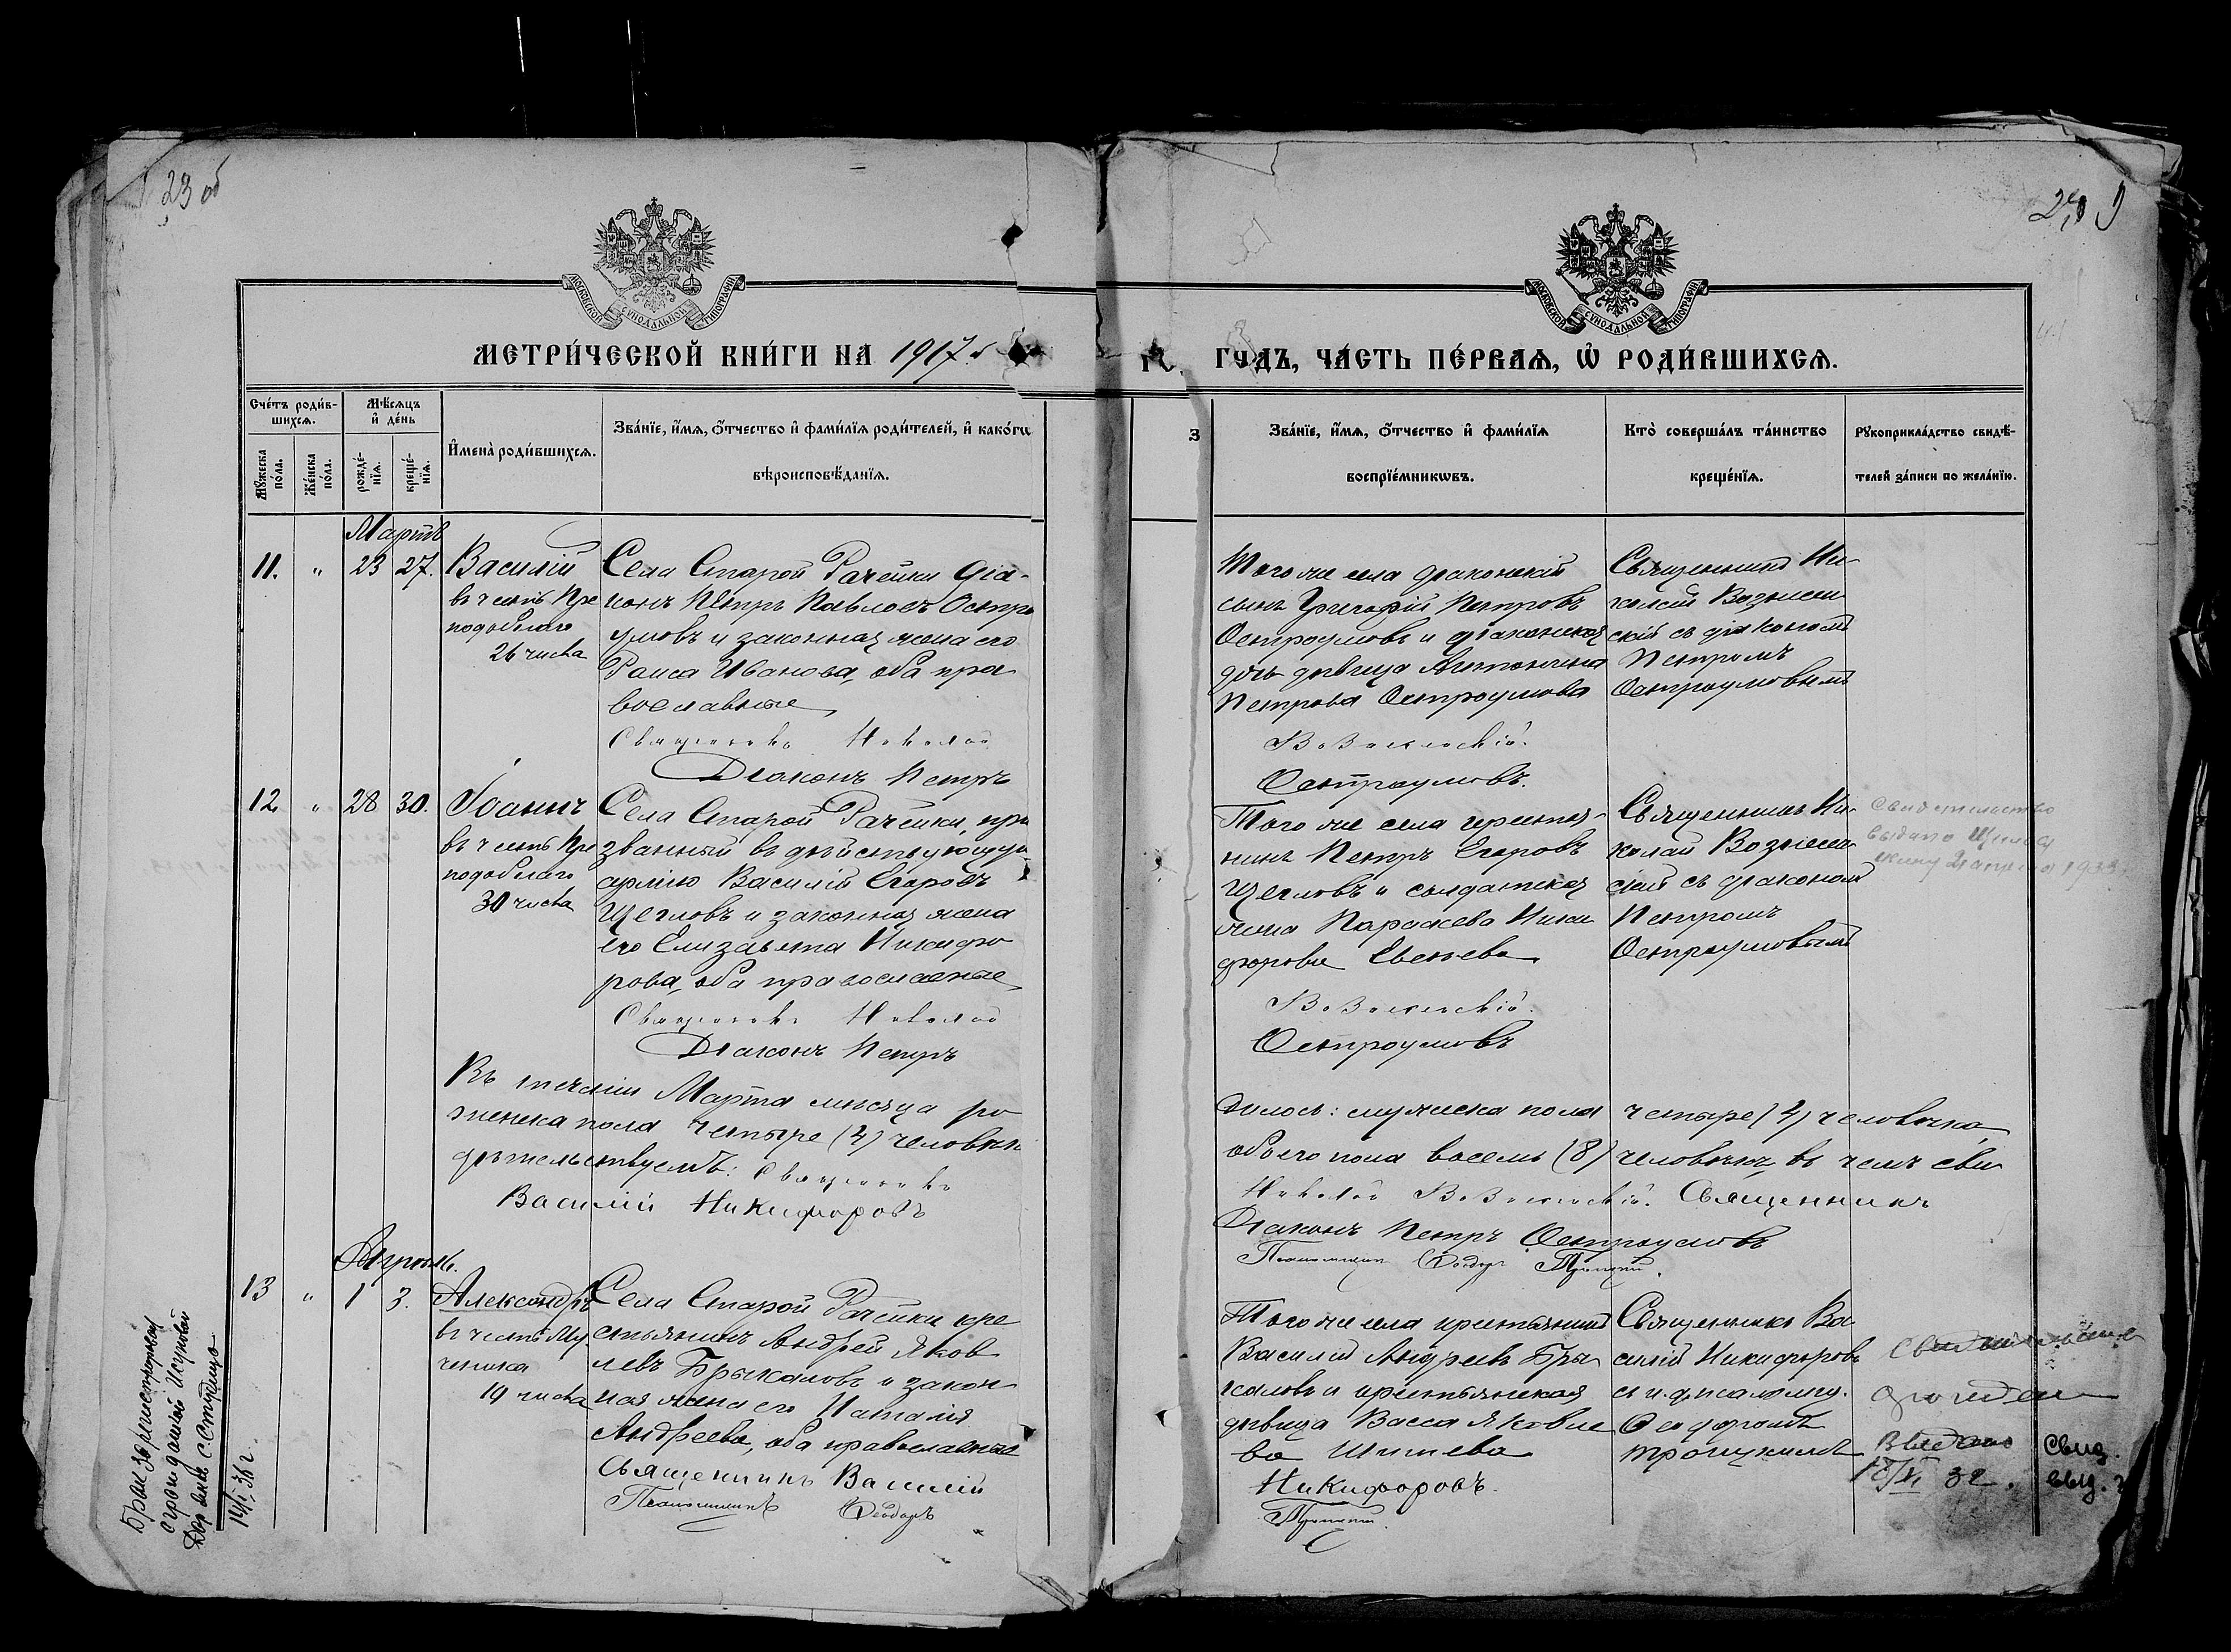 23 об
24
МОСКОВСКОЙ СѴНОДАЛЬНОЙ ТИПОГРАФІИ
МОСКОВСКОЙ СѴНОДАЛЬНОЙ ТИПОГРАФІИ
МЕТРИ́ЧЕСКОЙ КНИ́ГИ НА 1917 г.
ГО́ДЪ, ЧА́СТЬ ПЕ́РВАѦ, Ѡ҆ РОДИ́ВШИХСѦ.
Сче́тъ роди́в-
шихсѧ.
Мꙋ́жеска по́ла.
Же́нска по́ла.
Мѣ́сѧцъ
и҆ де́нь
рожде́-
нїѧ.
креще́-
нїѧ.
И҆мена̀ роди́вшихсѧ.
Зва́нїе, и҆́мѧ, ѻ҆́тчество и҆ фами́лїѧ роди́телей, и҆ како́гѡ
вѣроисповѣ́данїѧ.
Зва́нїе, и҆́мѧ, ѻ҆́тчество и҆ фами́лїѧ
воспрїе́мникѡвъ.
Кто̀ соверша́лъ та́инство
креще́нїѧ.
Рꙋкоприкла́дство свидѣ́-
телей за́писи по жела́нїю.
Мартъ
11. " 23 27. Василій
въ честь Пре
подобнаго
26 числа
Села Старой Рачейки діа-
конъ Петръ Павловъ Остро
умовъ и законная жена его
Раиса Иванова, оба пра
вославные
Священникъ Николай
Діаконъ Петръ
Того же села діаконскій
сынъ Григорій Петровъ
Остроумовъ и діаконская
дочь девица Антонина
Петрова Остроумова
Вознесенскій.
Остроумовъ.
Священникъ Ни-
колай Вознесен
скій съ діакономъ
Петромъ
Остроумовымъ
12. " 28 30. Іоаннъ
въ честь Пре
подобнаго
30 числа
Села Старой Рачейки, при
званный въ дѣйствующую
армію Василій Егоровъ
Щегловъ и законная жена
его Елизавета Никифо
рова, оба православные
Священникъ Николай
Діаконъ Петръ
Того же села крестья-
нинъ Петръ Егоровъ
Щегловъ и солдатская
жена Параскева Ники
форова Евсеева
Вознесенскій.
Остроумовъ
Священникъ Ни-
колай Вознесен
скій съ діакономъ
Петромъ
Остроумовымъ
Свидетельство
выдано
апреля 1933
Въ теченіи Марта мѣсяца ро
дилось: мужеска пола четыре (4) человѣка,
женска пола четыре (4) человѣка
обоего пола восемь (8) человѣкъ, въ чемъ сви
дѣтельствуемъ: Священникъ
Николай Вознесенскій. Священникъ
Василій Никифоровъ
Діаконъ Петръ Остроумовъ
Псаломщикъ Ѳеодоръ Троицкій.
Апрѣль.
13 " 1 3. Александръ
въ честь Му-
ченика
19 числа
Села Старой Рачейки кре
стьянинъ Андрей Яков
левъ Брыкаловъ и закон
ная жена его Наталія
Андреева, оба православные
Священникъ Василій
Псаломщикъ Ѳеодоръ
Того же села крестьянинъ
Василій Андреевъ Бры
каловъ и крестьянская
девица Васса Яковле
ва Шишева
Никифоровъ.
Троицкій.
Священникъ Ва-
силій Никифоровъ
съ и.д. псаломщ.
Ѳеодоромъ
Троицкимъ
выдано
32. свид.
Брак зарегистрирован
с гражданкой
14/I 36 г.